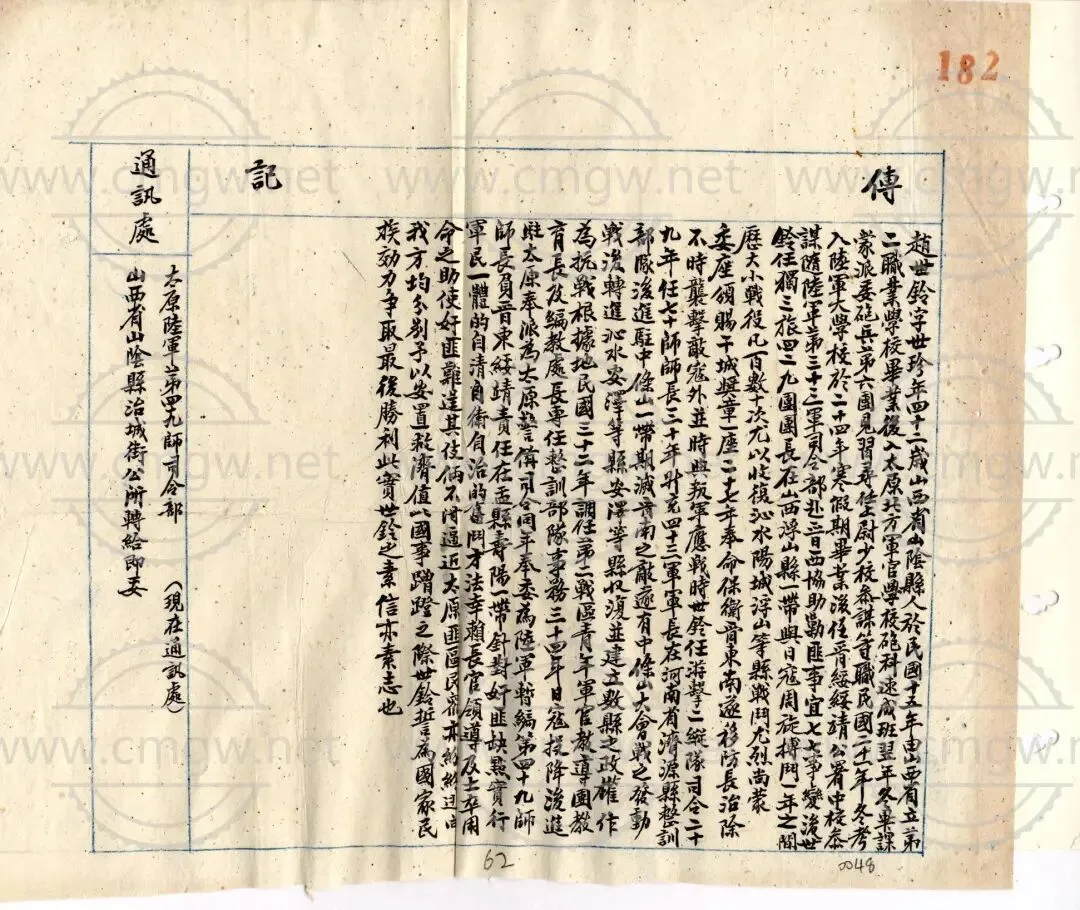 182
傳記
趙世鈴字世珍年四十二歲山西省山陰縣人於民國十五年由山西省立第
二職業學校畢業後入太原北方軍官學校砲科速成班翌年冬畢業
蒙派委砲兵第六團見習尋任上尉少校參謀等職民國二十一年冬考
入陸軍大學校於二十四年寒假期畢業後任晉綏綏靖公署中校參
謀隨陸軍第三十三軍司令部赴晉西協助勦匪事宜七七事變後世
鈴任獨三旅四二九團團長在山西浮山縣一帶與日寇周旋搏鬥一年之間
歷大小戰役凡百數十次尤以收復沁水陽城浮山等縣戰鬥尤烈尚蒙
委座頒賜干城獎章一座二十七年奉命保衛晉東南遂移防長治除
不時襲擊敵寇外並時與叛軍應戰時世鈴任游擊二縱隊司令二十
九年任七十師師長三十年升充四十三軍軍長在河南省濟源縣整訓
部隊後進駐中條山一帶期滅晉南之敵遂有中條山大會戰之發動
戰後轉進沁水安澤等縣安澤等縣收復並建立數縣之政權作
為抗戰根據地民國三十二年調任第二戰區青年軍官教導團教
育長及編教處長專任整訓部隊事務三十四年日寇投降後進
駐太原奉派為太原警備司令同年奉委為陸軍暫編第四十九師
師長負晉東綏靖責任在盂縣壽陽一帶針對奸匪缺點實行
軍民一體的自清自衛自治的奮鬥方法幸賴長官領導及士卒用
命之助使奸匪難逞其伎倆不得逼近太原匪區民眾亦紛紛逃向
我方均分別予以安置救濟值此國事蹭蹬之際世鈴誓為國家民
族効力爭取最後勝利此實世鈴之素信亦素志也
通訊處
太原陸軍第四九師司令部 (現在通訊處)
山西省山陰縣治城街公所轉給即妥
62
0048
www.cmgw.net